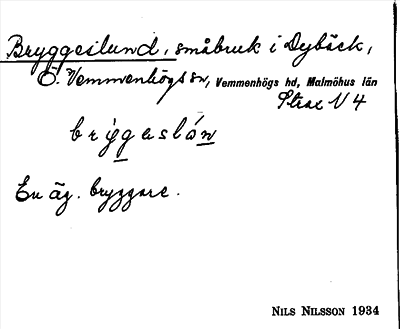 Bryggeslund, småbruk i Dybäck,
Ö. Vemmenhögs sn, Vemmenhögs hd, Malmöhus län
Strax N 4
brygaslán
En äg. bryggare.
NILS NILSSON 1934